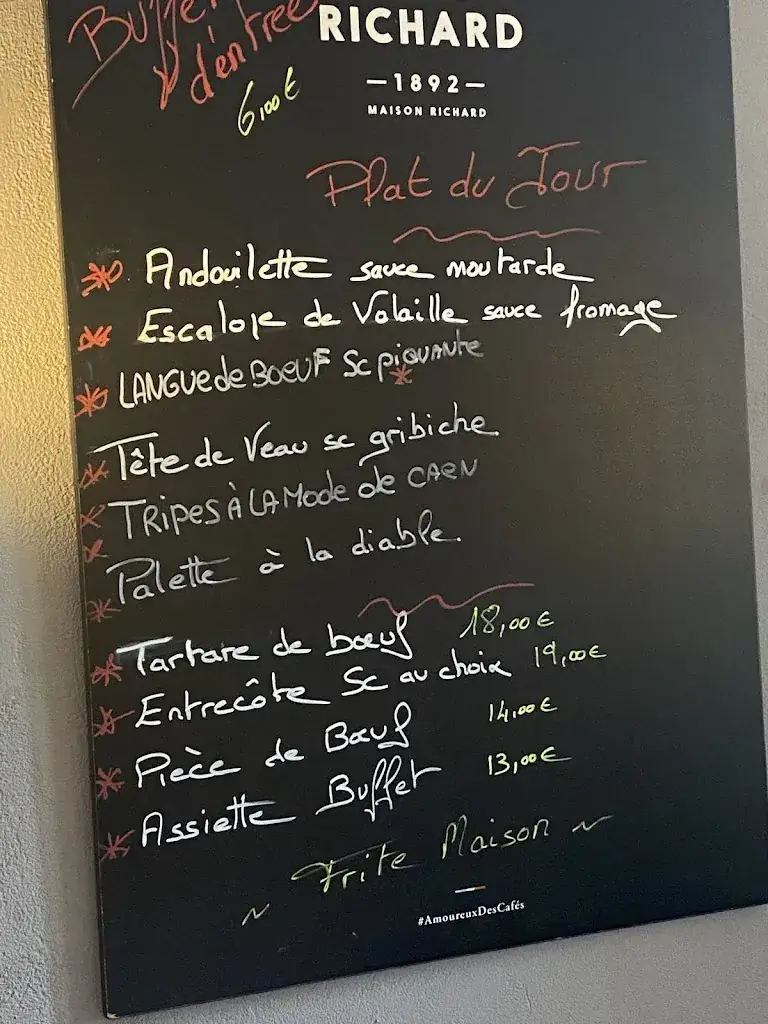 Buffet
d'entrée
6,00€
RICHARD
—1892—
MAISON RICHARD
Plat du Jour
Andouilette sauce moutarde
Escalope de Volaille sauce fromage
LANGUE de BOEUF Sc piQUANTE
Tête de Veau sc gribiche
TRIPES À LA MODE de CAEN
Palette à la diable.
Tartare de bœuf 18,00€
Entrecôte Sc au choix 19,00€
Pièce de Bœuf 14,00€
Assiette Buffet 13,00€
~ Frite Maison ~
#AmoureuxDesCafés